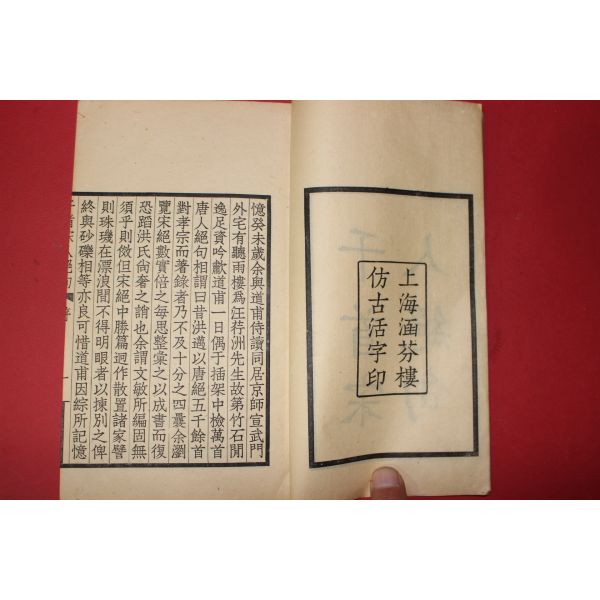 上海涵芬樓
仿古活字印
憶癸未歲余與道甫侍讀同居京師宣武門
外宅有聽雨樓爲汪荇洲先生故第竹石閒
逸足資吟歗道甫一日偶于插架中檢萬首
唐人絕句相謂曰昔洪邁以唐絕五千餘首
對孝宗而著錄者乃不及十分之四曩余瀏
覽宋絕數實倍之每思整彙之以成書而復
恐蹈洪氏尙奢之誚也余謂文敏所編固無
須乎則倣但宋絕中勝篇迥作散置諸家譬
則珠璣在漂浪閒不得明眼者以揀別之俾
終與砂礫相等亦良可惜道甫因綜所記憶
千首宋人絕句 序 一